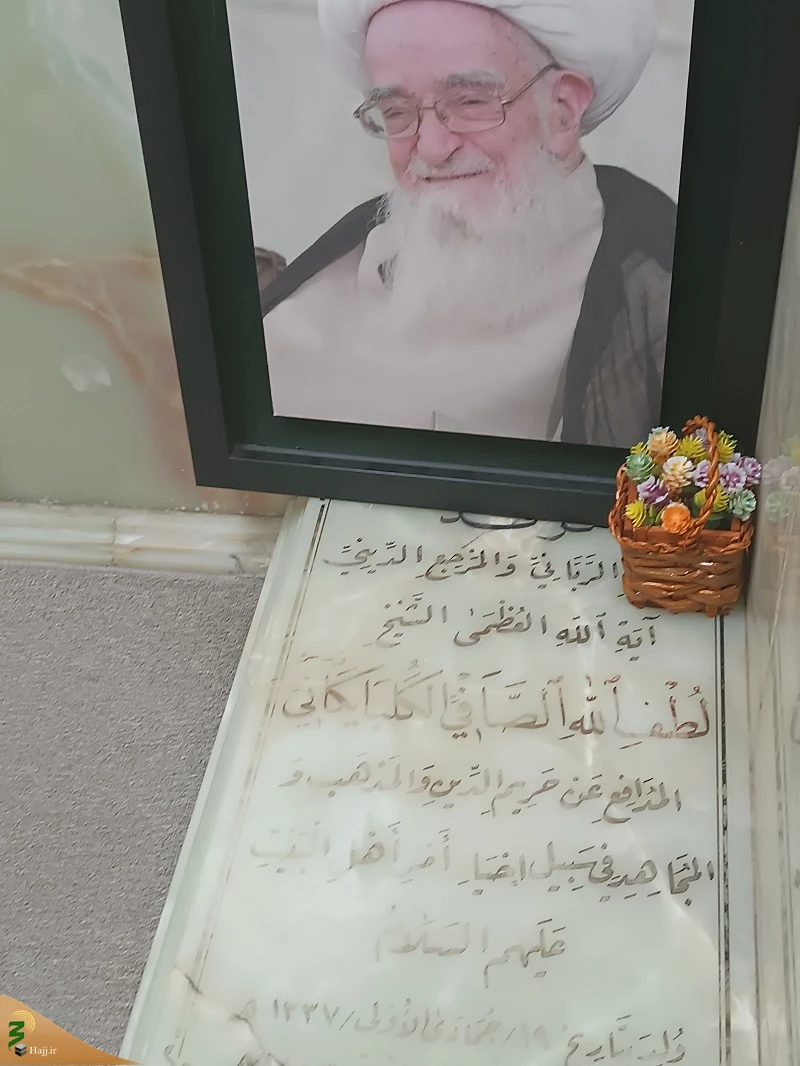 الرَّبَّانِيِّ وَالمَرْجِعِ الدِّينِيِّ
آيَةِ ٱللهِ العُظْمَىٰ الشَّيْخِ
لُطْفِ ٱللهِ ٱلصَّافِي الگُلپَايگَانِي
المُدَافِعِ عَنْ حَرِيمِ الدِّينِ وَالمَذْهَبِ وَ
المُجَاهِدِ فِي سَبِيلِ إِحْيَاءِ أَمْرِ أَهْلِ الْبَيْتِ
عَلَيْهِمُ السَّلَامُ
وُلِدَ بِتَارِيخِ ١٩/جُمَادَى الأُولَى/١٣٣٧ هـ
Hajj.ir